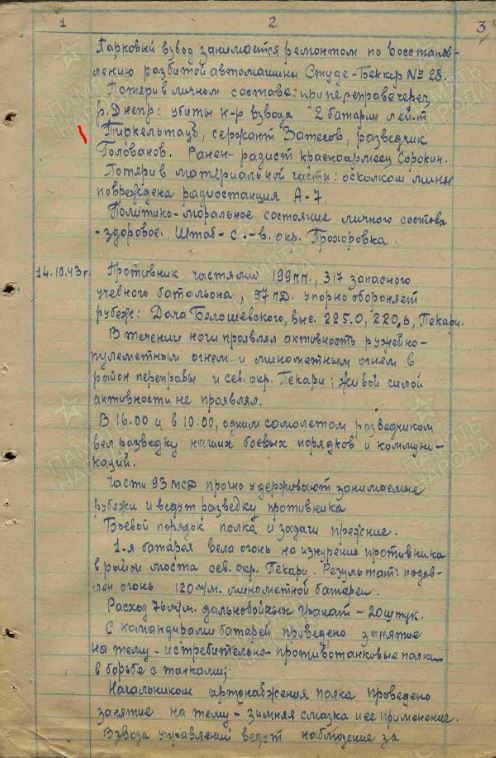 1 2 3
Парковый взвод занимается ремонтом по восстанов-
лению разбитой автомашины Студе-Беккер № 28.
Потери в личном составе: при переправе через
р. Днепр: убиты к-р взвода 2 батареи лей-т
Пиркельтауб, сержант Затесов, разведчик
Голованов. Ранен - радист красноармеец Сорокин.
Потери в материальной части: осколком мины
повреждена радиостанция А-7.
Политико-моральное состояние личного состава
- здоровое. Штаб - с.-в. окр. Прохоровка.
14.10.43г. Противник частями 199 пп., 317 запасного
учебного батальона, 57 пд. упорно обороняет
рубеж: Дача Белошевского, выс. 225.0, 220,6, Пекари.
В течении ночи проявлял активность ружейно-
пулеметным огнем и минометным огнем в
район переправы и сев. окр. Пекари; живой силой
активности не проявлял.
В 16.00 и в 10.00, одним самолетом разведчиком
вел разведку наших боевых порядков и коммуни-
каций.
Части 93 мсд прочно удерживают занимаемые
рубежи и ведут разведку противника
Боевой порядок полка и задачи прежние.
1-я батарея вела огонь на изнурение противника
в район моста сев. окр. Пекари. Результат: подав-
лен огонь 120 м/м. минометной батареи.
Расход 76 м/м. дальнобойных гранат - 20 штук.
С командирами батарей проведено занятие
на тему - истребительно-противотанковые полки
в борьбе с танками;
Начальником артснабжения полка проведено
занятие на тему - зимняя смазка и ее применение.
Взвода управлений ведут наблюдение за